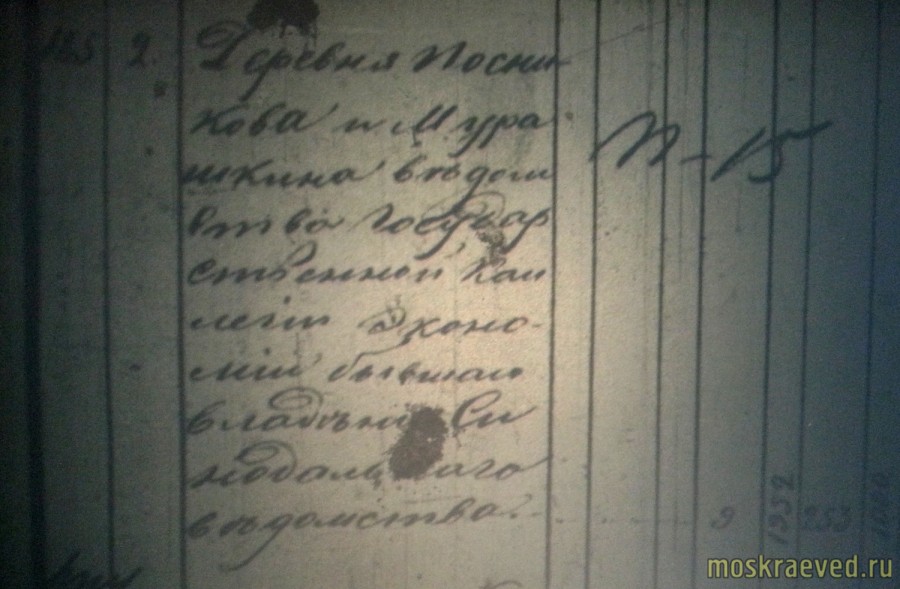 125 2. Деревня Посни-
кова и Мура
шкина вѣдом
ства Государ
ственной Кол
легiи Эконо-
мiи бывшаго
владѣнiя Си
нодальнаго
вѣдомства. 9 1332 253
П-15
moskraeved.ru